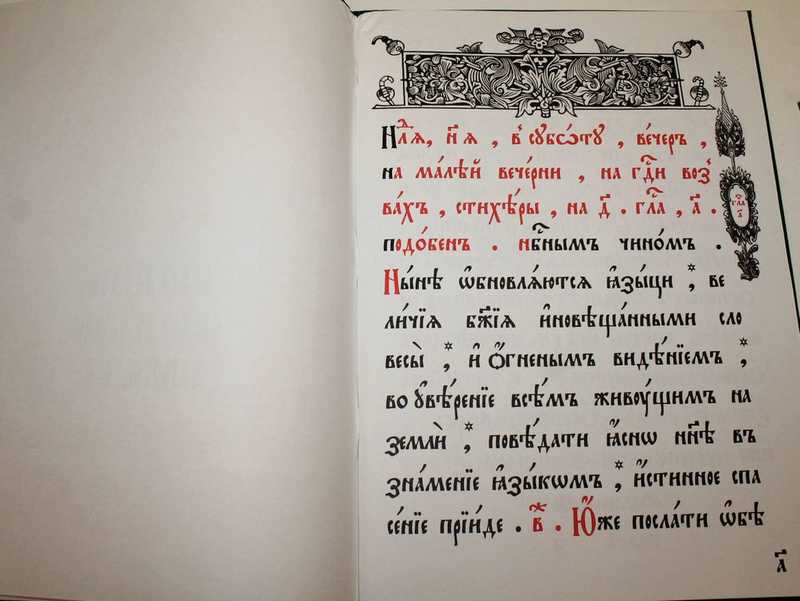 Нⷣлѧ, н҃ѧ , в̾ сꙋббѡ́тꙋ , ве́черъ ,
на ма́лѣй вече́рни , на гдⷭ҇и воз̾
ва́хъ , стихѣ́ры , на д҃ . гла҇ , а҃ .
подо́бенъ . нбⷭ҇нымъ чи́номъ .
Ны́нѣ ѡ҆бновлѧ́ютсѧ ꙗ҆зы́цы * ; ве
ли́чїѧ бж҃їѧ и҆новѣща́нными сло
весы̀ * ; и҆ ѻ҆́гненымъ видѣ́нїемъ * ;
во ᲂу҆вѣ́ренїе всѣ́мъ живꙋ́щимъ на
землѝ * ; повѣ́дати ꙗ҆́снѡ нн҃ѣ въ
зна́менїе ꙗ҆зы́кѡмъ * ; и҆́стинное спа
се́нїе прїи́де . в҃ . Ю҆́же посла́ти ѡ҆бѣ
гла҇
а҃
а҃